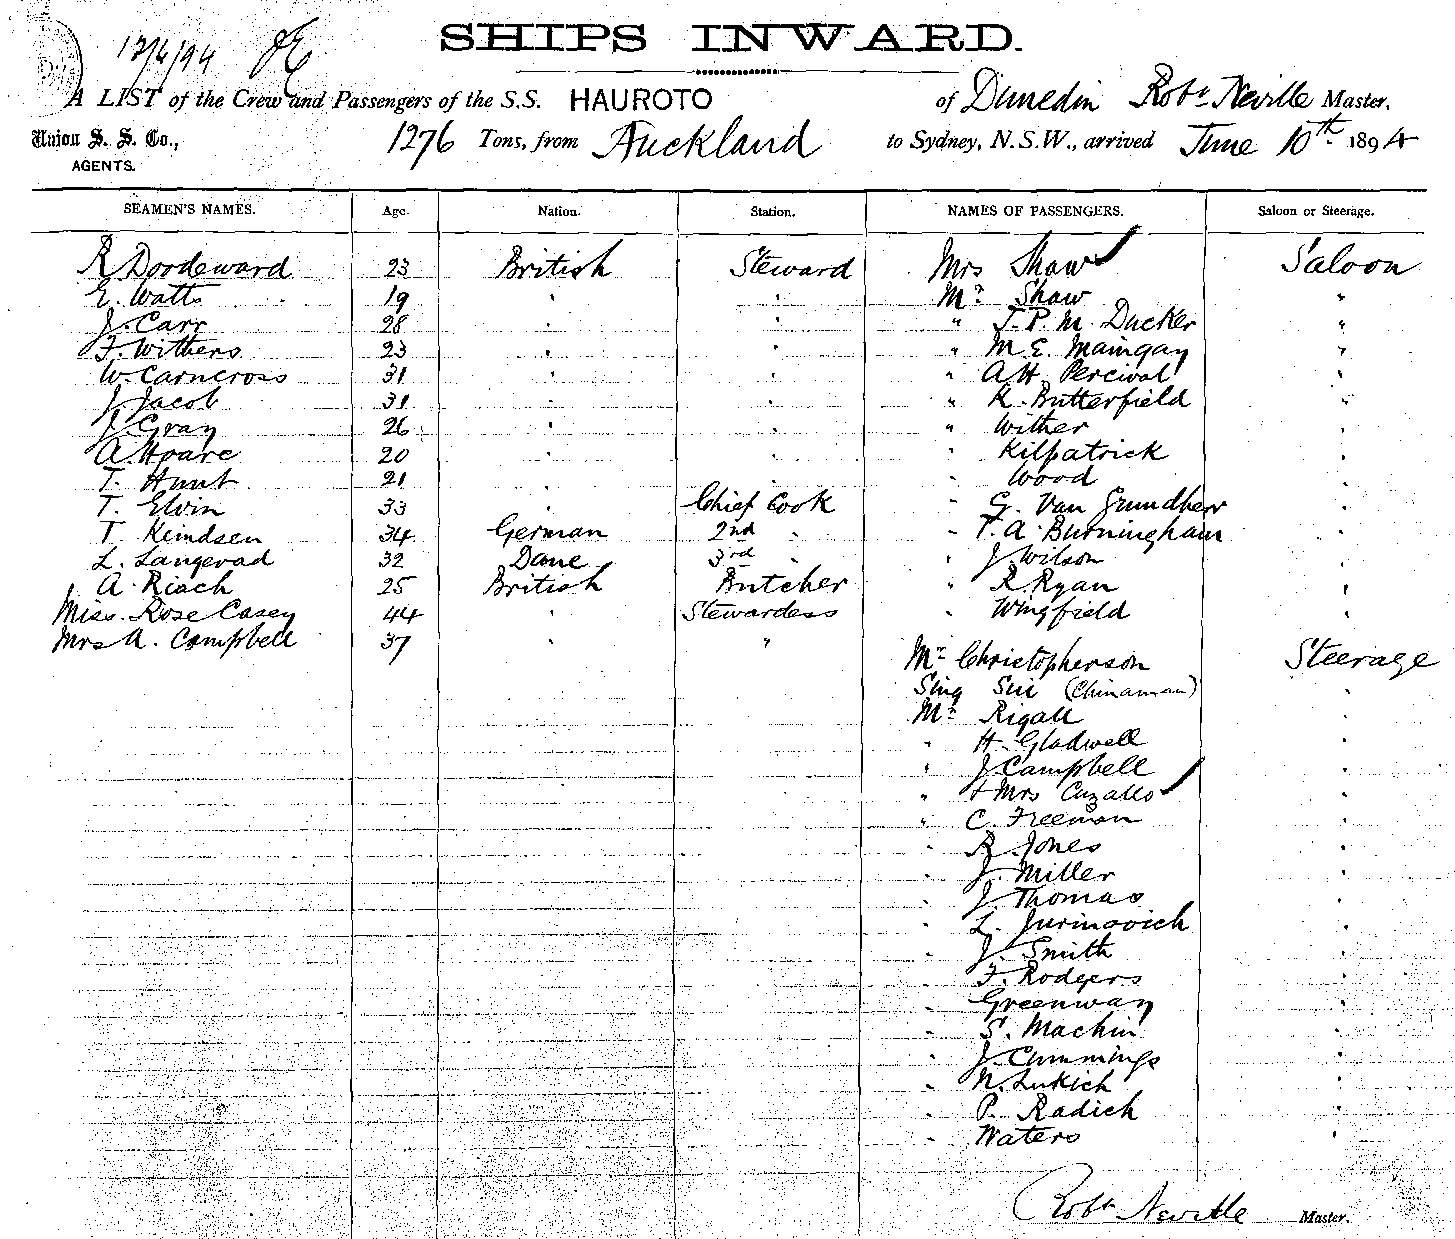 SHIPS INWARD.
12/6/94
A LIST of the Crew and Passengers of the S.S. HAUROTO of Dunedin Robt Neville Master,
Union S. S. Co., 1276 Tons, from Auckland to Sydney, N.S.W., arrived June 10th 1894
AGENTS.
SEAMEN'S NAMES. Age. Nation. Station. NAMES OF PASSENGERS. Saloon or Steerage.
R Doodeward 23 British Steward Mrs Shaw Saloon
E. Watts 19 " " Mr Shaw "
J. Carr 28 " " " J. P. M. Ducker "
F. Withers 23 " " " M. E. Maingay "
W. Carncross 31 " " " A H. Percival "
J Jacob 31 " " " K. Butterfield "
J. Gray 26 " " " Wither "
A. Hoare 20 " " " Kilpatrick "
T. Hunt 21 " " " Wood "
T. Elvin 33 " Chief Cook " G. Van Grundherr "
T. Keindsen 34 German 2nd " " T. A. Burningham "
L. Langevad 32 Dane 3rd " " J. Wilson "
A. Riach 25 British Butcher " R. Ryan "
Miss. Rose Casey 44 " Stewardess " Wingfield "
Mrs A. Campbell 37 " "
Mr Christopherson Steerage
Sing Sui (Chinaman) "
Mr Rigall "
" H. Gladwell "
" J Campbell "
" + Mrs Cuzallo "
" C. Freeman "
" R. Jones "
" J. Miller "
" J. Thomas "
" L. Jurinovich "
" J. Smith "
" F. Rodgers "
" Greenway "
" S. Machin "
" J. Cummings "
" N. Lukich "
" P. Radich "
" Waters "
Robt Neville Master.